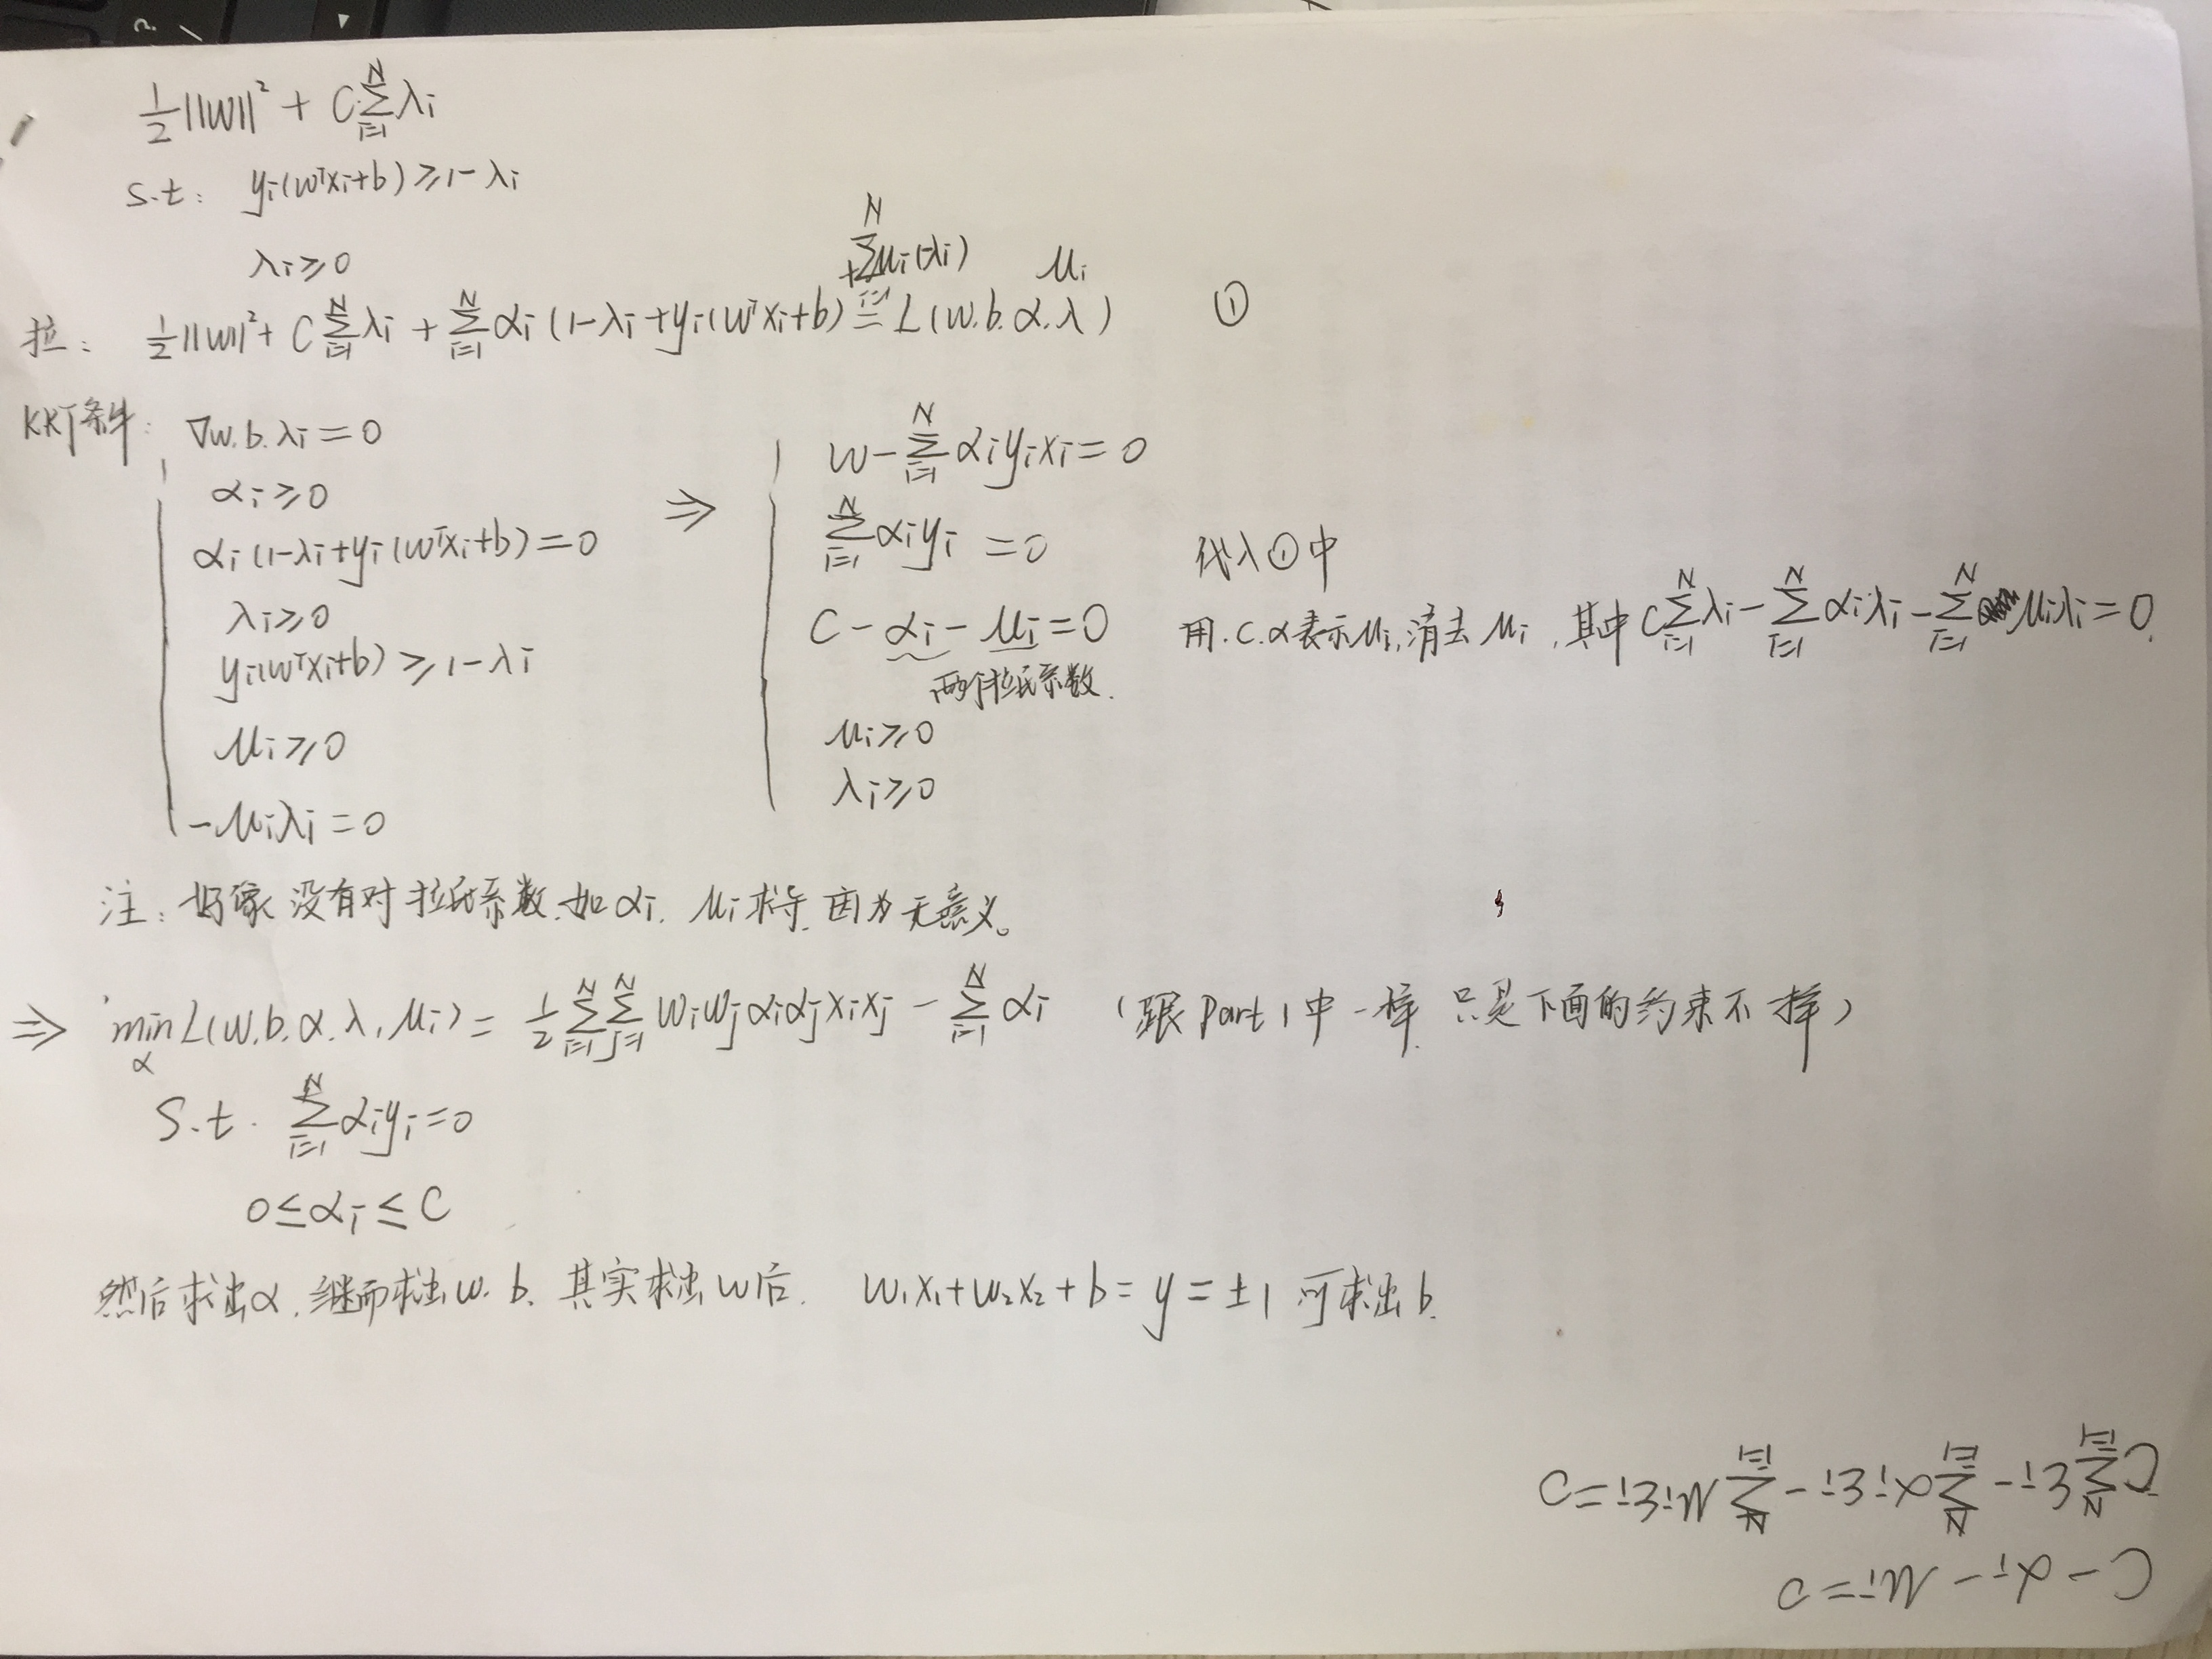 ½||w||² + C∑ᵢ₌₁ᴺ λᵢ
s.t: yᵢ(wᵀxᵢ+b) ≥ 1-λᵢ
λᵢ≥0
拉: ½||w||² + C∑ᵢ₌₁ᴺ λᵢ + ∑ᵢ₌₁ᴺ αᵢ(1-λᵢ+yᵢ(wᵀxᵢ+b) + ∑ᴺ μᵢ(-λᵢ) = L(w.b.α.λ) μᵢ ①
KKT条件: ∇w.b.λᵢ=0
αᵢ≥0
αᵢ(1-λᵢ+yᵢ(wᵀxᵢ+b)=0
λᵢ≥0
yᵢ(wᵀxᵢ+b) ≥ 1-λᵢ
μᵢ≥0
-μᵢλᵢ=0
⇒ w-∑ᵢ₌₁ᴺ αᵢyᵢxᵢ=0
∑ᵢ₌₁ᴺ αᵢyᵢ =0 代入①中
C-αᵢ-μᵢ=0 用.C.α表示μᵢ,消去μᵢ,其中C∑ᵢ₌₁ᴺ λᵢ-∑ᵢ₌₁ᴺ αᵢλᵢ-∑ᵢ₌₁ᴺ μᵢλᵢ=0.
两个拉格系数.
μᵢ≥0
λᵢ≥0
注:好像没有对拉格系数.如αᵢ.μᵢ求导.因为无意义。
⇒ min_α L(w.b.α.λ.μᵢ) = ½∑ᵢ₌₁ᴺ∑ⱼ₌₁ᴺ wᵢwⱼαᵢαⱼxᵢxⱼ - ∑ᵢ₌₁ᴺ αᵢ (跟Part 1中一样.只是下面的约束不一样)
S.t. ∑ᵢ₌₁ᴺ αᵢyᵢ=0
0≤αᵢ≤C
然后求出α.继而求出w.b.其实求出w后. w₁x₁+w₂x₂+b=y=±1可求出b.
C∑ᵢ₌₁ᴺ ξᵢ-∑ᵢ₌₁ᴺ αᵢξᵢ-∑ᵢ₌₁ᴺ μᵢξᵢ=0
C-αᵢ-μᵢ=0
?
/